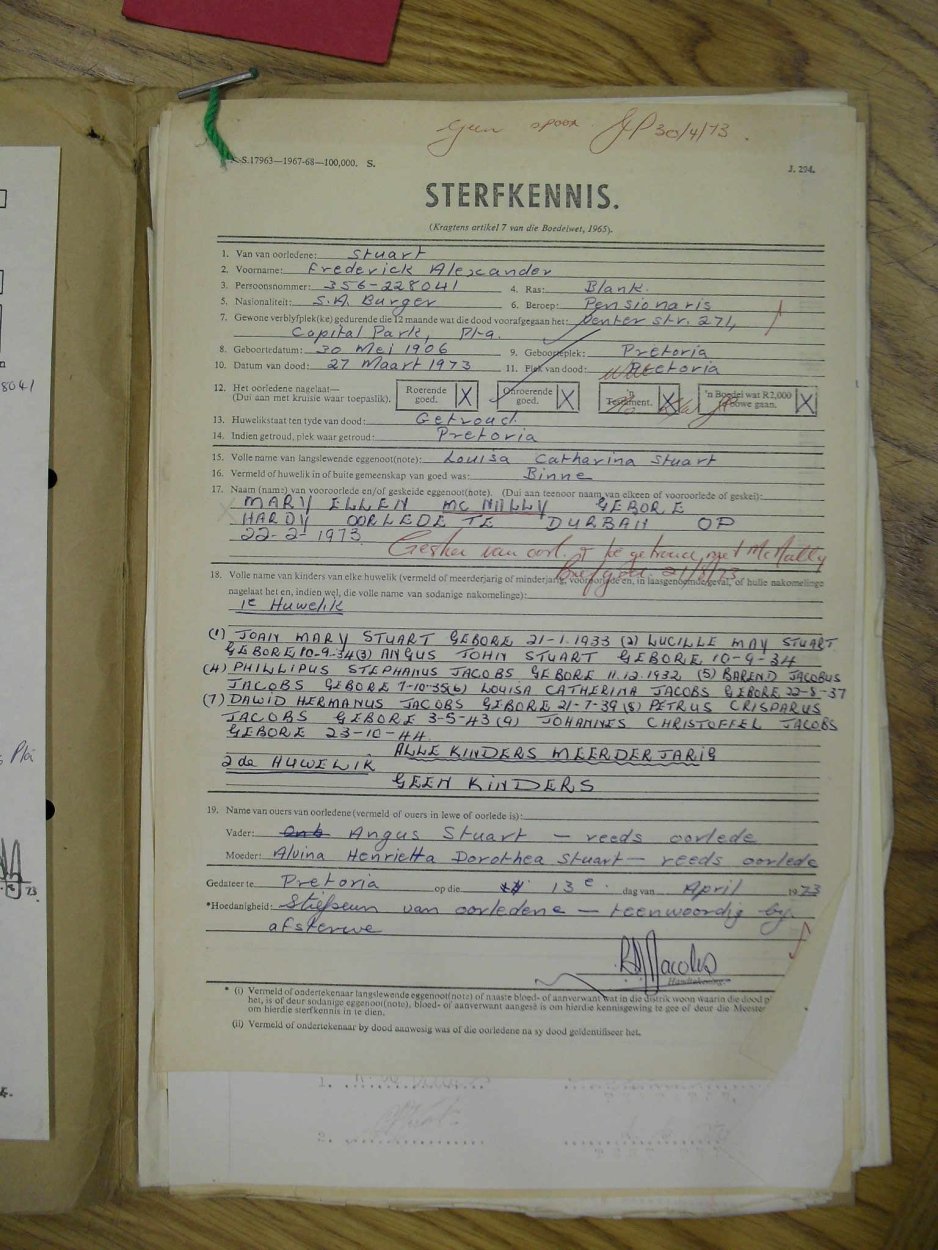 Geen spoor. 30/4/73.
S.17963—1967-68—100,000. S.
J. 294.
STERFKENNIS.
(Kragtens artikel 7 van die Boedelwet, 1965).
1. Van van oorledene: Stuart
2. Voorname: Frederick Alexander
3. Persoonsnommer: 356-228041 4. Ras: Blank.
5. Nasionaliteit: S.A. Burger 6. Beroep: Pensionaris
7. Gewone verblyfplek(ke) gedurende die 12 maande wat die dood voorafgegaan het: Venter str. 271,
Capital Park, Pta.
8. Geboortedatum: 30 Mei 1906 9. Geboorteplek: Pretoria
10. Datum van dood: 27 Maart 1973 11. Plek van dood: Pretoria
12. Het oorledene nagelaat— Roerende goed. X Onroerende goed. X 'n Testament. X 'n Boedel wat R2,000 te bowe gaan. X
(Dui aan met kruisie waar toepaslik).
13. Huwelikstaat ten tyde van dood: Getroud
14. Indien getroud, plek waar getroud: Pretoria
15. Volle name van langslewende eggenoot(note): Louisa Catharina Stuart
16. Vermeld of huwelik in of buite gemeenskap van goed was: Binne
17. Naam (name) van vooroorlede en/of geskeide eggenoot(note). (Dui aan teenoor naam van elkeen of vooroorlede of geskei):
MARY ELLEN MC NALLY GEBORE
HARDY OORLEDE TE DURBAN OP
22-2-1973.
Geskei van oorl. & getroud met McNally
Brief gedt. 21/5/73
18. Volle name van kinders van elke huwelik (vermeld of meerderjarig of minderjarig, vooroorlede en, in laasgenoemde geval, of hulle nakomelinge
nagelaat het en, indien wel, die volle name van sodanige nakomelinge):
1e Huwelik
(1) JOAN MARY STUART GEBORE 21-1-1933 (2) LUCILLE MAY STUART
GEBORE 10-9-34 (3) ANGUS JOHN STUART GEBORE 10-9-34
(4) PHILLIPUS STEPHANUS JACOBS GEBORE 11.12.1932 (5) BAREND JACOBUS
JACOBS GEBORE 7-10-35 (6) LOUISA CATHERINA JACOBS GEBORE 22-8-37
(7) DAWID HERMANUS JACOBS GEBORE 21-7-39 (8) PETRUS CRISPARUS
JACOBS GEBORE 3-5-43 (9) JOHANNES CHRISTOFFEL JACOBS
GEBORE 23-10-44.
ALLE KINDERS MEERDERJARIG
2de HUWELIK
GEEN KINDERS
19. Name van ouers van oorledene (vermeld of ouers in lewe of oorlede is):
Vader: Angus Stuart — reeds oorlede
Moeder: Alvina Henrietta Dorothea Stuart — reeds oorlede
Gedateer te Pretoria op die 13e dag van April 1973
*Hoedanigheid: Stiefseun van oorledene — teenwoordig by
afsterwe
Jacobs
Handtekening.
* (i) Vermeld of ondertekenaar langslewende eggenoot(note) of naaste bloed- of aanverwant wat in die distrik woon waarin die dood
het, is of deur sodanige eggenoot(note), bloed- of aanverwant aangesê is om hierdie kennisgewing te gee of deur die Meester
om hierdie sterfkennis in te dien.
(ii) Vermeld of ondertekenaar by dood aanwesig was of die oorledene na sy dood geïdentifiseer het.